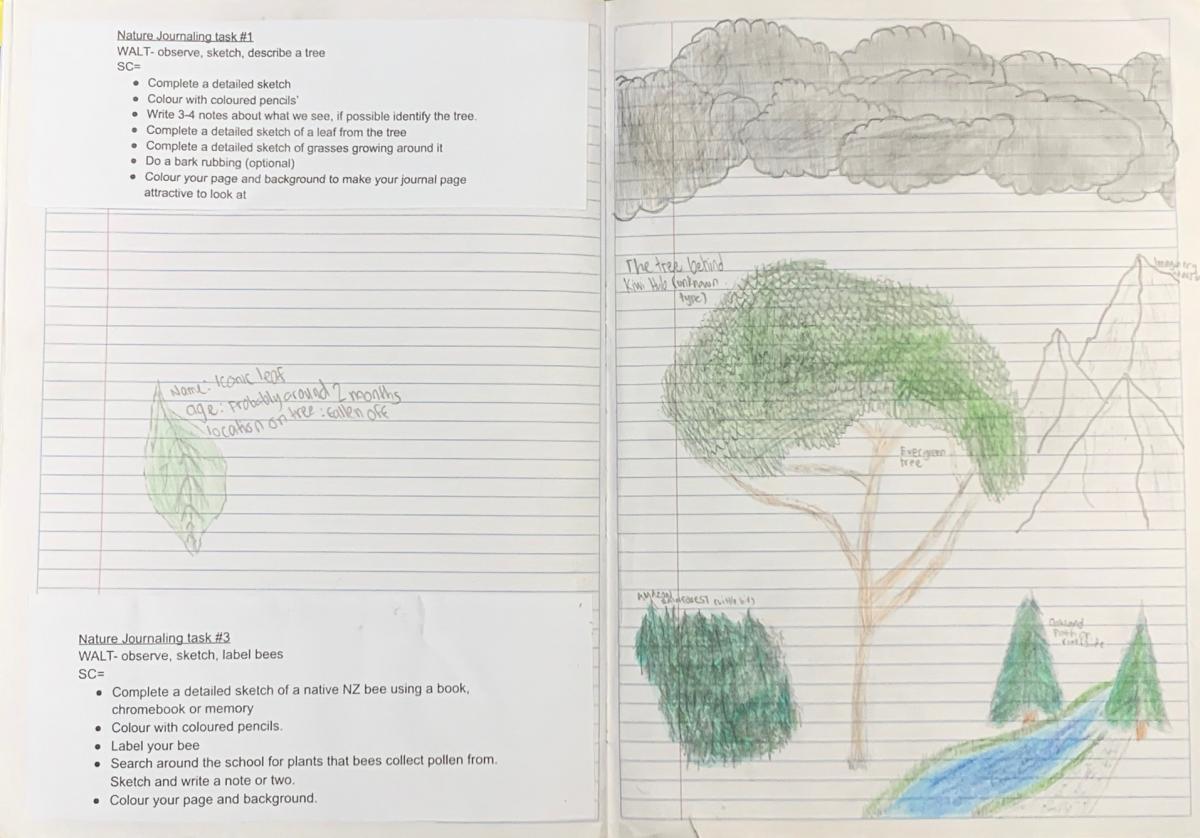 Nature Journaling task #1
WALT- observe, sketch, describe a tree
SC=
• Complete a detailed sketch
• Colour with coloured pencils'
• Write 3-4 notes about what we see, if possible identify the tree.
• Complete a detailed sketch of a leaf from the tree
• Complete a detailed sketch of grasses growing around it
• Do a bark rubbing (optional)
• Colour your page and background to make your journal page
attractive to look at
Name: Iconic leaf
age: Probably around 2 months
location on tree: fallen off
Nature Journaling task #3
WALT- observe, sketch, label bees
SC=
• Complete a detailed sketch of a native NZ bee using a book,
chromebook or memory
• Colour with coloured pencils.
• Label your bee
• Search around the school for plants that bees collect pollen from.
Sketch and write a note or two.
• Colour your page and background.
The tree behind
Kiwi Hub (unknown
type)
Evergreen
tree
AMAZON
RAINFOREST (little bit)